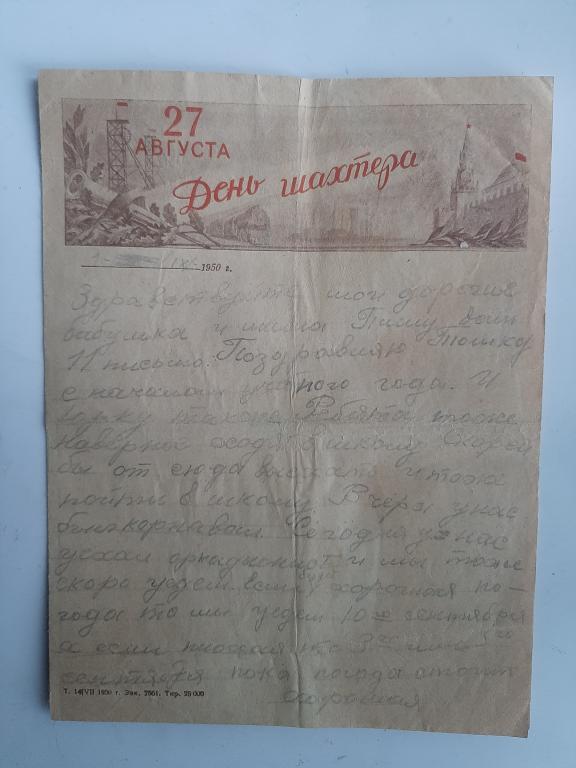 27
АВГУСТА
День шахтера
1950 г.
Здравствуйте мои дорогие
бабушка и Пишу Вам
11 письмо. Поздравляю Тошку
с началом учебного года. И
также. Ребята тоже
наверное ходят в школу Скорей
бы от сюда и тоже
пойти в школу. Вчера у нас
был карнавал. Сегодня у нас
уехал и мы тоже
скоро уедем. Если будет хорошая по-
года то мы уедем 10го сентября
а если плохая то 3го или 5го
сентября пока погода стоит
хорошая
Т. 14|VII 1950 г. Зак. 2661. Тир. 25 000